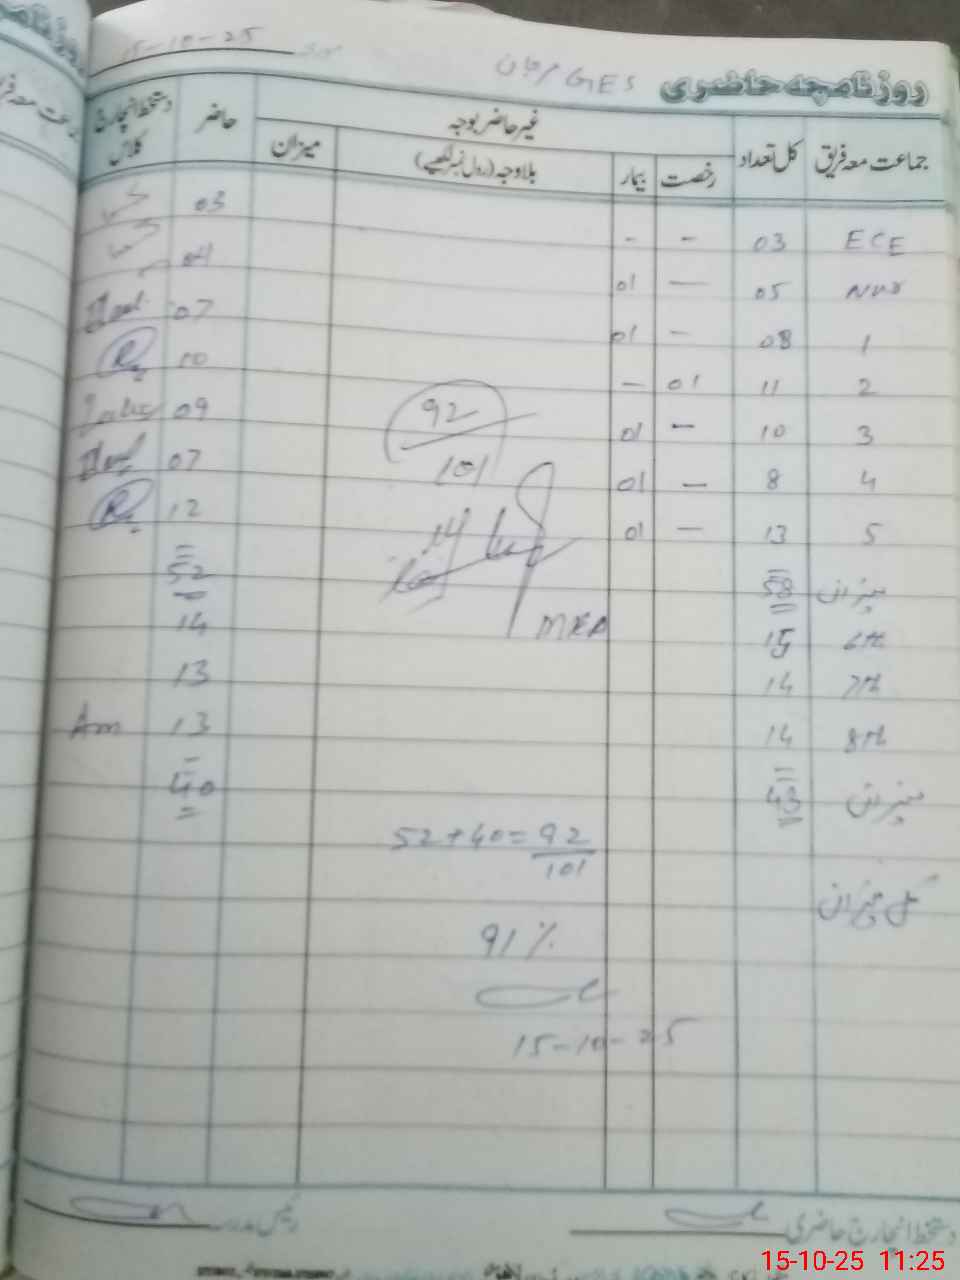 روزنامچہ حاضری GES مرجان مورخہ 15-10-25
جماعت معہ فریق کل تعداد غیر حاضر بوجہ حاضر دستخط انچارج کلاس
رخصت بیمار بلاوجہ (رول نمبر لکھیے) میزان
ECE 03 - - 03
Nur 05 — 01 04
1 08 - 01 07
2 11 01 — 10
3 10 — 01 09
4 8 — 01 07
5 13 — 01 12
92
101
میزان 58 52
MEA
6th 15 14
7th 14 13
8th 14 13 Am
میزان 43 40
52+40=92
101
کل میزان
91 %
15-10-25
دستخط انچارج حاضری رئیس مدرسہ
15-10-25 11:25